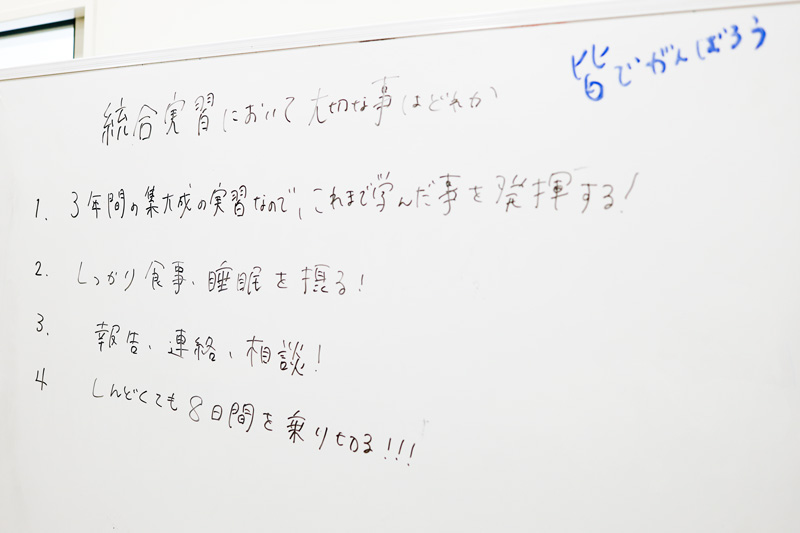 皆でがんばろう
統合実習において大切な事はどれか
1. 3年間の集大成の実習なので、これまで学んだ事を発揮する!
2. しっかり食事、睡眠を摂る!
3. 報告、連絡、相談!
4 しんどくても8日間を乗り切る!!!